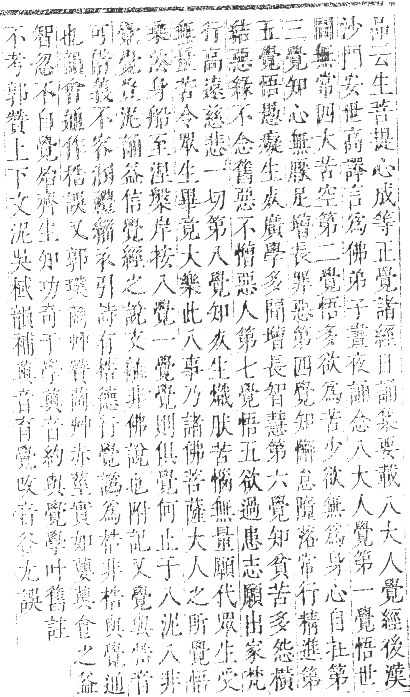 品云生菩提心成等正覺諸經日誦集要載八大人覺經後漢
沙門安世高譯言為佛弟子晝夜誦念八大人覺第一覺悟世
間無常四大苦空第二覺悟多欲為苦少欲無為身心自在第
三覺知心無厭足增長罪惡第四覺知懈怠墮落常行精進第
五覺悟愚癡生死廣學多聞增長智慧第六覺知貧苦多怨橫
結惡緣不念舊惡不憎惡人第七覺悟五欲過患志願出家梵
行高遠慈悲一切第八覺知死生熾肰苦惱無量願代眾生受
無量苦令眾生畢竟大樂此八事乃諸佛菩薩大人之所覺悟
乘法身船至涅槃岸按八覺一覺覺則俱覺何止于八泥入非
覺覺岩泥誦益信覺經之說支誰非佛說也附記又覺與梏音
明借義不容溷禮緇衣引詩有梏德行覺譌為梏非梏與覺通
也韻會通作梏誤又郭璞 艸贊 艸赤莖實如蘡薁食之益
智忽不自覺殆齊生知功奇于學與音約與覺學叶舊註
不考郭贊上下文泥吳棫韻補與音育覺改音谷尤誤